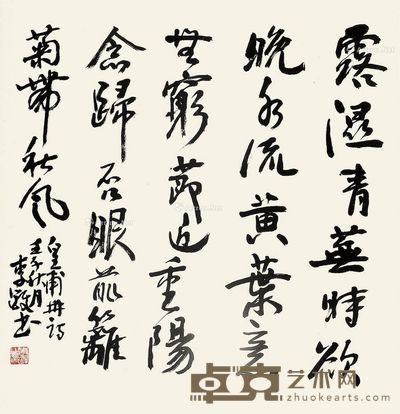 露濕青蕪時欲
晚水流黄葉意
無窮節近重陽
念歸否眼前籬
菊帶秋風
皇甫冉詩
壬子秋月
李 书
卓克艺术网
zhuokearts.com